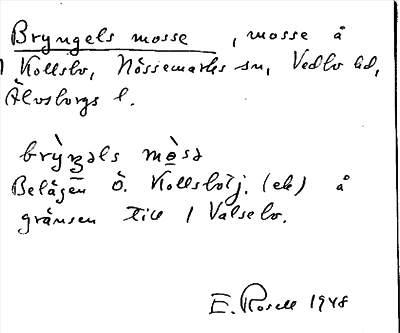 Bryngels mosse, mosse å
1 Kollsbo, Nössemarks sn, Vedbo hd,
Älvsborgs l.
brỳŋəls mòsə
Belägen Ö. Kollsbotj. (ek) å
gränsen till 1 Valsebo.
E. Rosell 1948